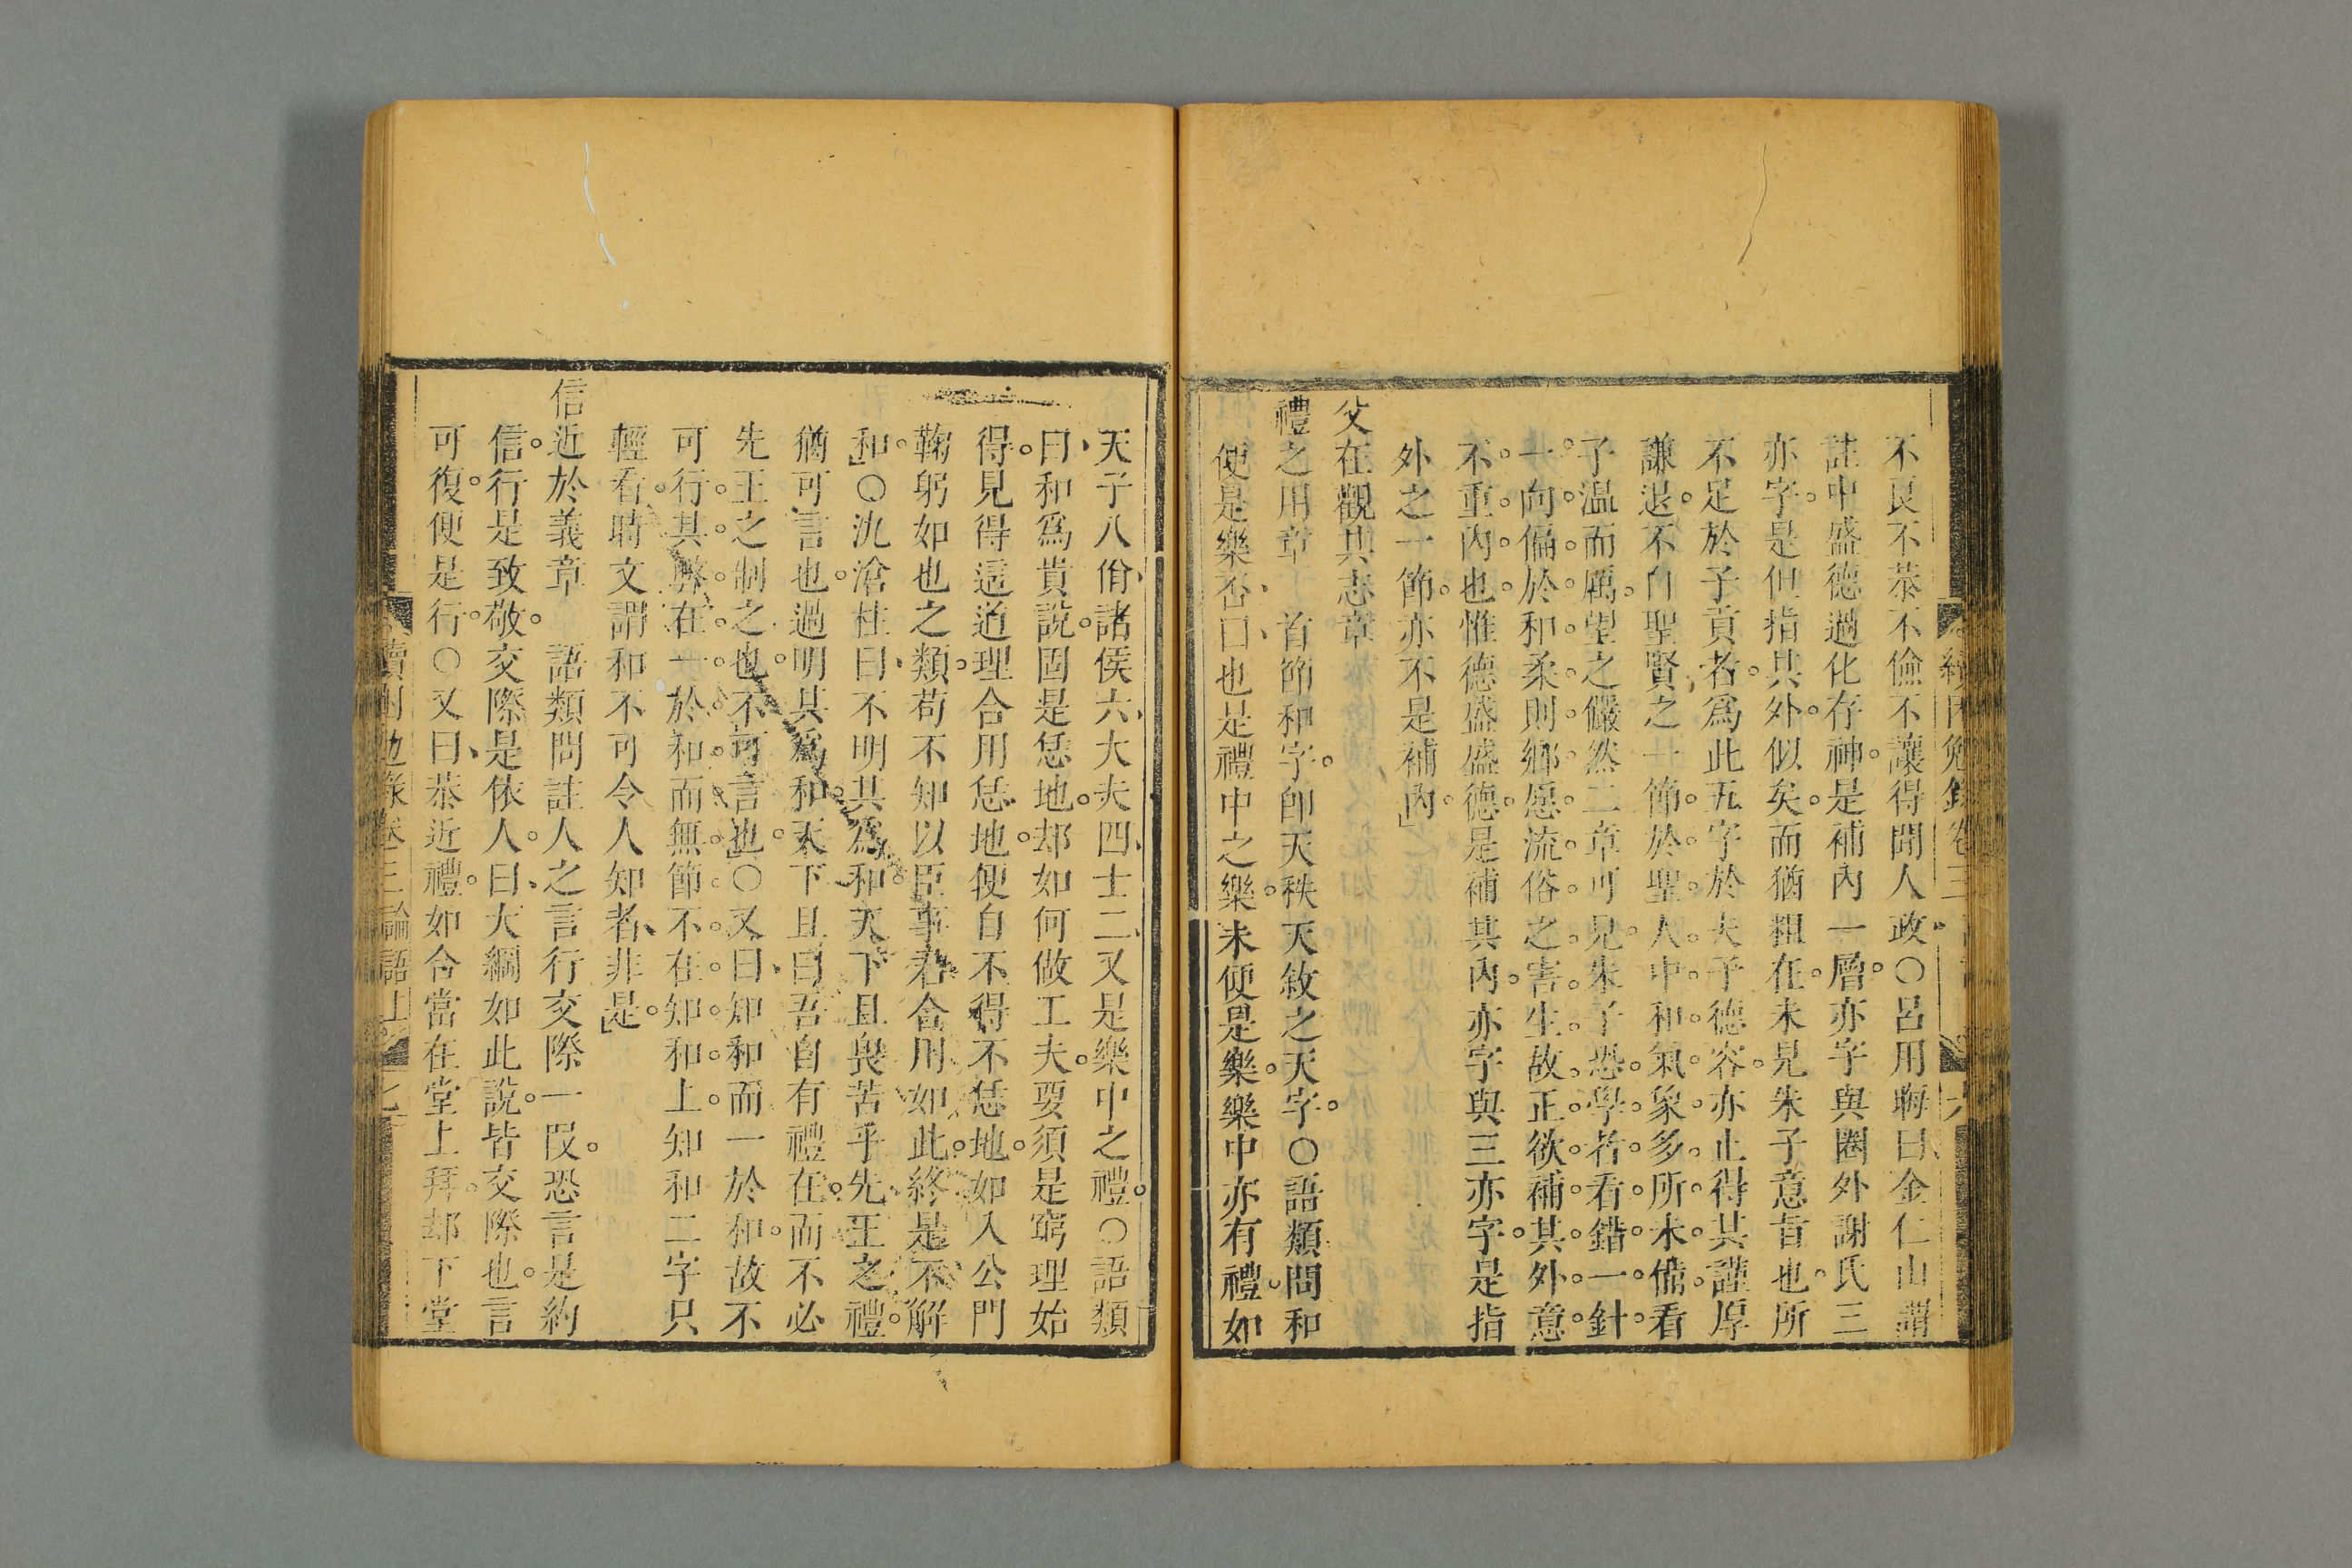 不良不恭不儉不讓得聞人政○呂用晦曰金仁山謂
註中盛德過化存神是補內一層亦字與圈外謝氏三
亦字是但指其外似矣而猶粗在未見朱子意旨也所
不足於子貢者爲此五字於夫子德容亦止得其謹厚
謙退不自聖賢之一節於聖人中和氣象多所未備看
子溫而厲望之儼然二章可見朱子恐學者看錯一針
一向偏於和柔則鄉愿流俗之害生故正欲補其外意
不重內也惟德盛盛德是補其內亦字與三亦字是指
外之一節亦不是補內
父在觀其志章
禮之用章 首節和字卽天秩天敘之天字○語類問和
便是樂否曰也是禮中之樂未便是樂樂中亦有禮如
天子八佾諸侯六大夫四士二又是樂中之禮○語類
曰和爲貴說固是恁地却如何做工夫要須是窮理始
得見得這道理合用恁地便自不得不恁地如入公門
鞠躬如也之類苟不知以臣事君合用如此終是不解
和○沈滄柱曰不明其爲和天下且畏苦乎先王之禮
猶可言也過明其爲和天下且曰吾自有禮在而不必
先王之制之也不可言也○又曰知和而一於和故不
可行其弊在一於和而無節不在知和上知和二字只
輕看時文謂和不可令人知者非是
信近於義章 語類問註人之言行交際一段恐言是約
信行是致敬交際是依人曰大綱如此說皆交際也言
可復便是行○又曰恭近禮如合當在堂上拜却下堂
讀困勉錄卷三論語上 七